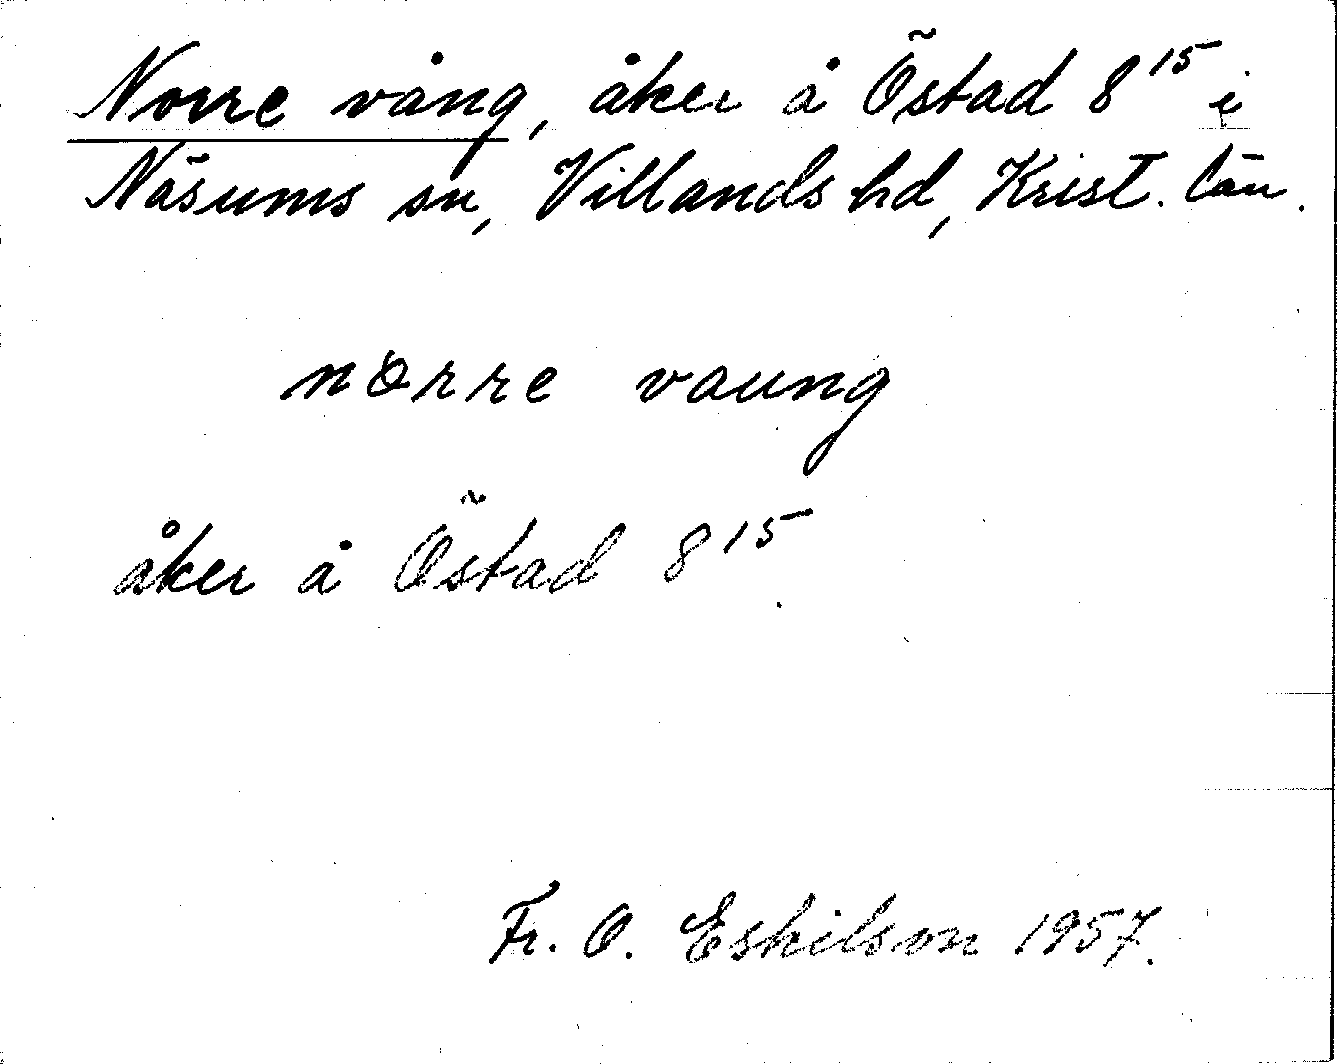 Norre vång, åker å Östad 8¹⁵ i
Näsums sn, Villands hd, Krist. län.
norre vaung
åker å Östad 8¹⁵.
Fr. O. Eskilson 1957.